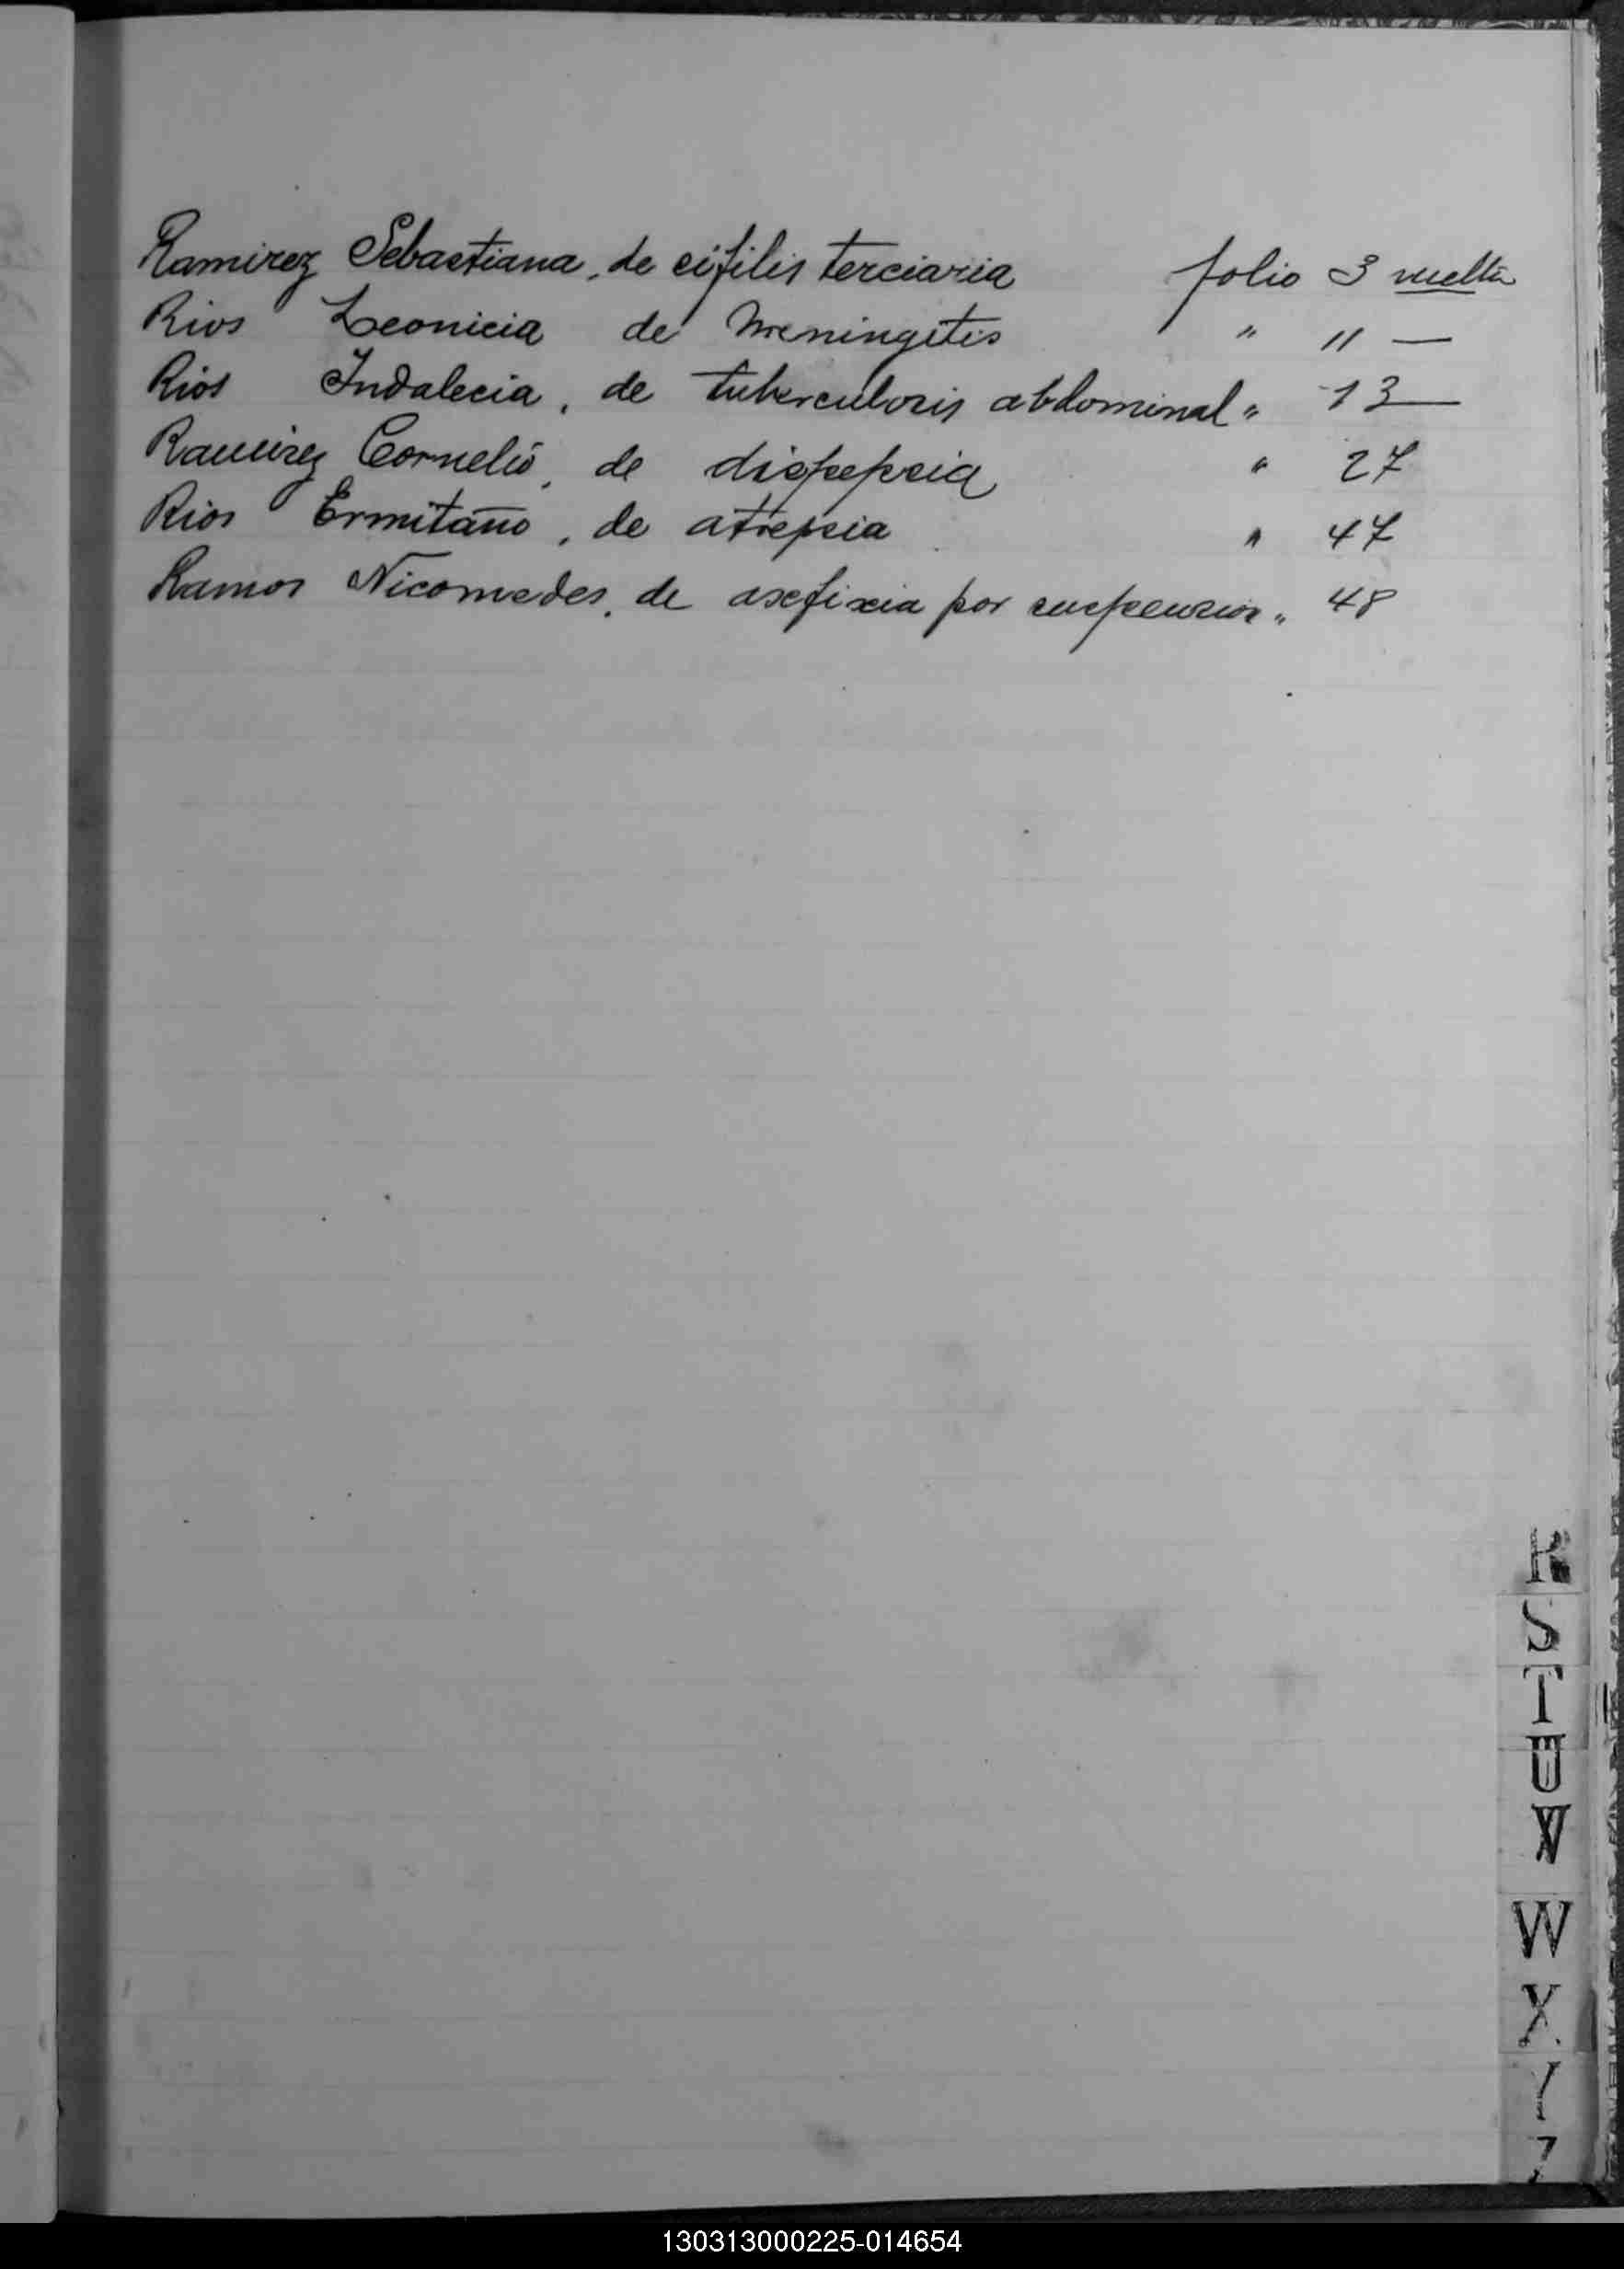 Ramirez Sebastiana, de sifilis terciaria folio 3 vuelta
Rios Leonicia de Meningitis " 11 —
Rios Indalecia, de tuberculosis abdominal " 13 —
Ramirez Cornelio, de dispepsia " 27
Rios Ermitaño, de atrepsia " 47
Ramos Nicomedes, de asefixia por suspension " 48
R
S
T
U
V
W
X
Y
Z
130313000225-014654